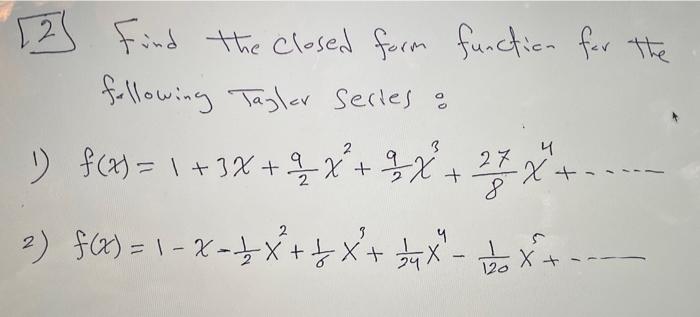 [2] Find the closed form function for the
following Taylor Series :
1) f(x) = 1 + 3x + 9/2 x² + 9/2 x³ + 27/8 x⁴ + ......
2) f(x) = 1 - x - 1/2 x² + 1/6 x³ + 1/24 x⁴ - 1/120 x⁵ + ......